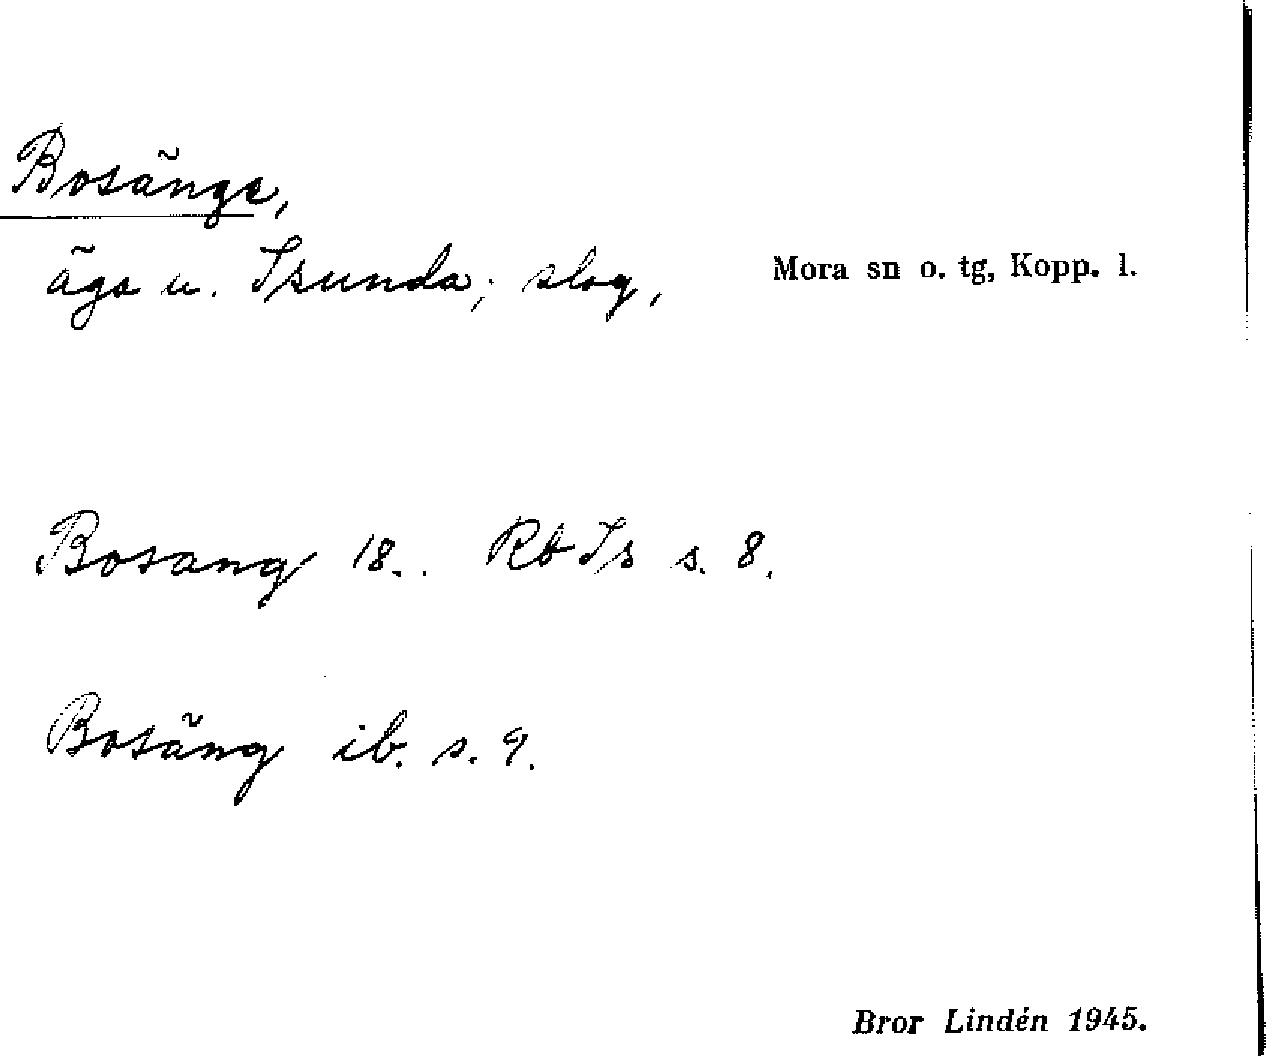 Bosänge,
äga u. Isunda; slog,
Mora sn o. tg, Kopp. l.
Bosang 18.. Rb Is s. 8.
Bosäng ib. s. 9.
Bror Lindén 1945.